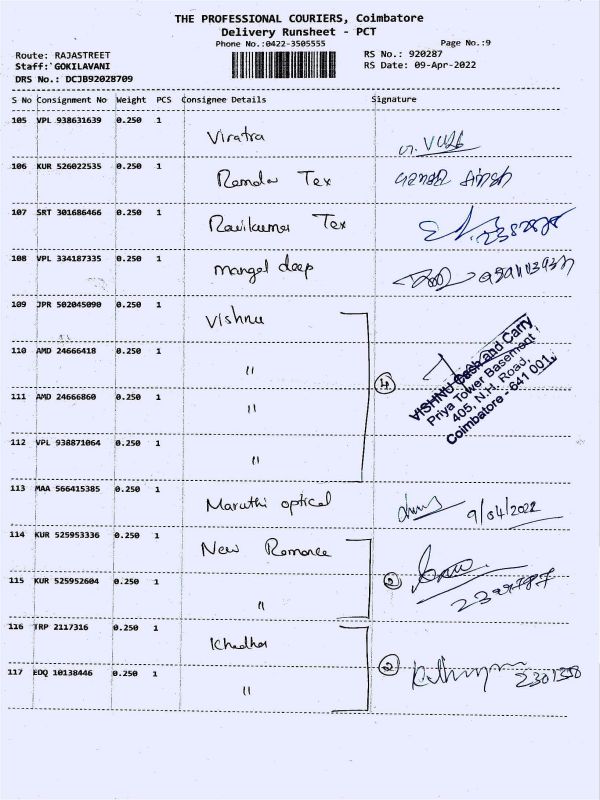 THE PROFESSIONAL COURIERS, Coimbatore
Delivery Runsheet - PCT
Phone No.:0422-3505555
Page No.:9
Route: RAJASTREET
RS No.: 920287
Staff: GOKILAVANI
RS Date: 09-Apr-2022
DRS No.: DCJB92028709
S No Consignment No Weight PCS Consignee Details Signature
105 VPL 938631639 0.250 1
Viratra
106 KUR 526022535 0.250 1
Ramdev Tex
107 SRT 301686466 0.250 1
Ravikumar Tex
108 VPL 334187335 0.250 1
mangal deep
109 JPR 502045090 0.250 1
Vishnu
110 AMD 24666418 0.250 1
"
4
VISHNU Cash and Carry
Priya Tower Basement,
405, N.H. Road,
Coimbatore - 641 001.
111 AMD 24666860 0.250 1
"
112 VPL 938871064 0.250 1
"
113 MAA 566415385 0.250 1
Maruthi optical 9/04/2022
114 KUR 525953336 0.250 1
New Romance
2
115 KUR 525952604 0.250 1
"
116 TRP 2117316 0.250 1
Khadhar
2
117 EDQ 10138446 0.250 1
"
2301350